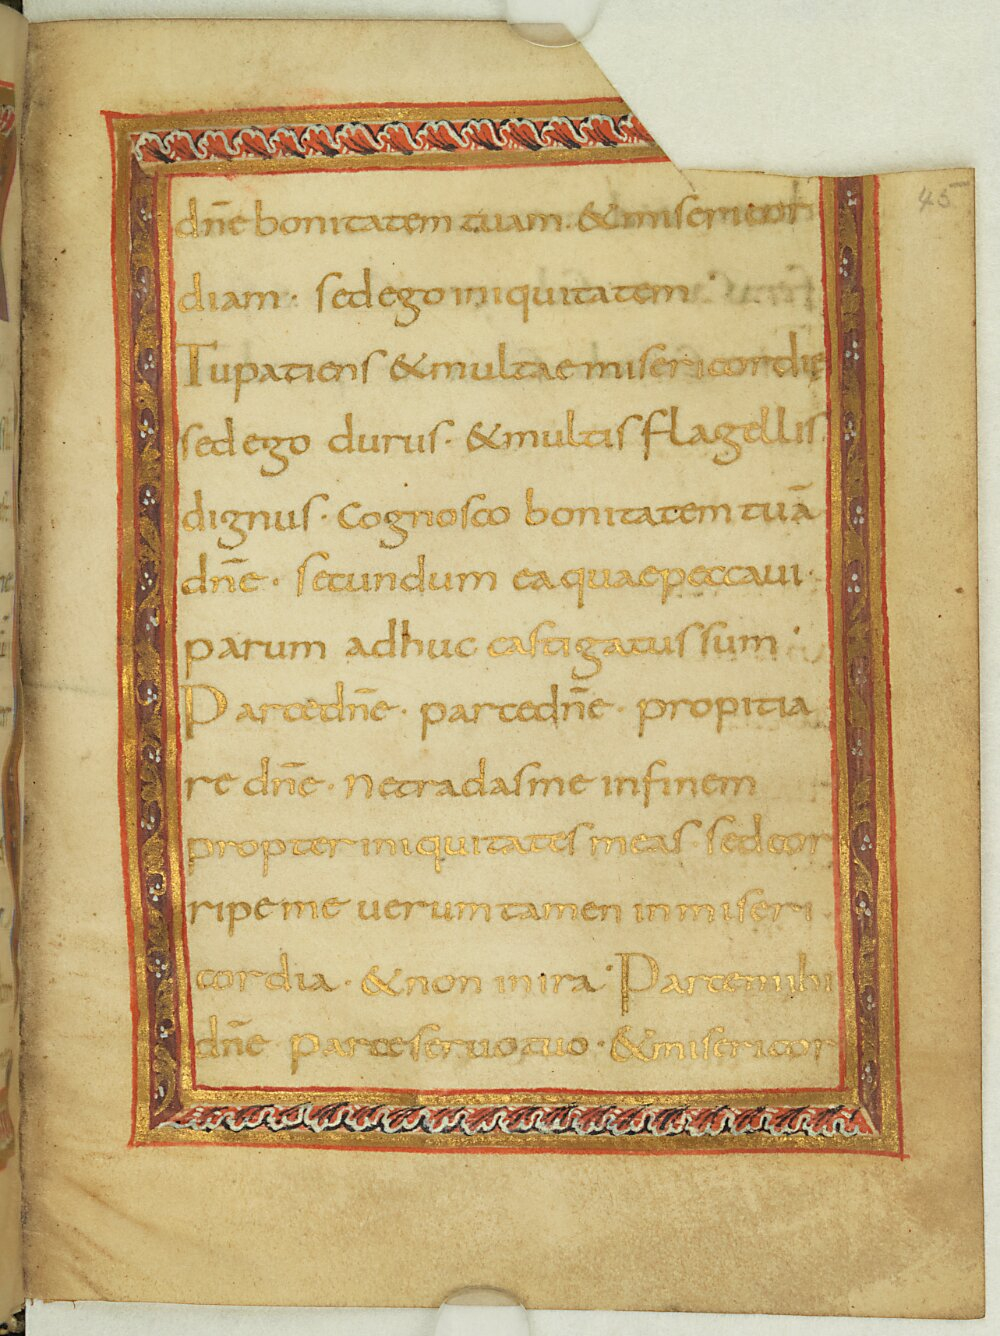 45
dn̄e bonitatem tuam. & misericor
diam. sed ego iniquitatem
Tu patiens & multae misericordie
sed ego durus. & multis flagellis
dignus. Cognosco bonitatem tuā
dn̄e. secundum ea quae peccaui.
parum adhuc castigatus sum.
Parce dn̄e. parce dn̄e. propitia
re dn̄e. ne tradas me in finem
propter iniquitates meas. sed cor
ripe me uerumtamen in miseri
cordia. & non in ira. Parce mihi
dn̄e parce seruo tuo. & misericor